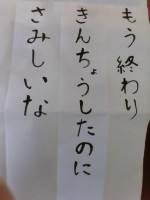 もう終わり
きんちょうしたのに
さみしいな